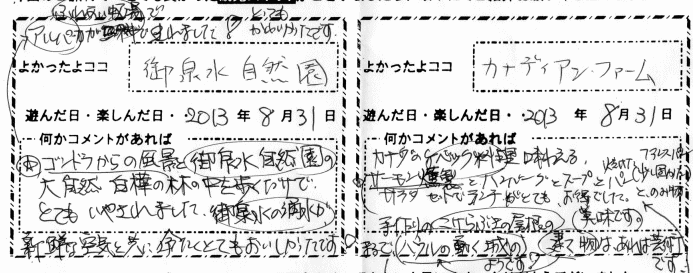 アルパカが
生れました
とても
かわいかったです。
よかったよココ
御泉水自然園
遊んだ日・楽しんだ日・・2013年8月31日
何かコメントがあれば
ゴンドラからの風景と御泉水自然園の
大自然 白樺の林の中を歩くだけで
とても いやされました。御泉水の湧水が
新鮮な空気と共に冷たくとてもおいしかったです
よかったよココ
カナディアン・ファーム
遊んだ日・楽しんだ日・・2013年8月31日
何かコメントがあれば
カナダのケベック料理 味わえる
サーモン燻製とハンバーグとスープとパン
サラダ セットでランチがとても、お得でした。
手作りの
美味です。
まるでハウルの動く城の
ようです
建て物は、あれは芸術
です